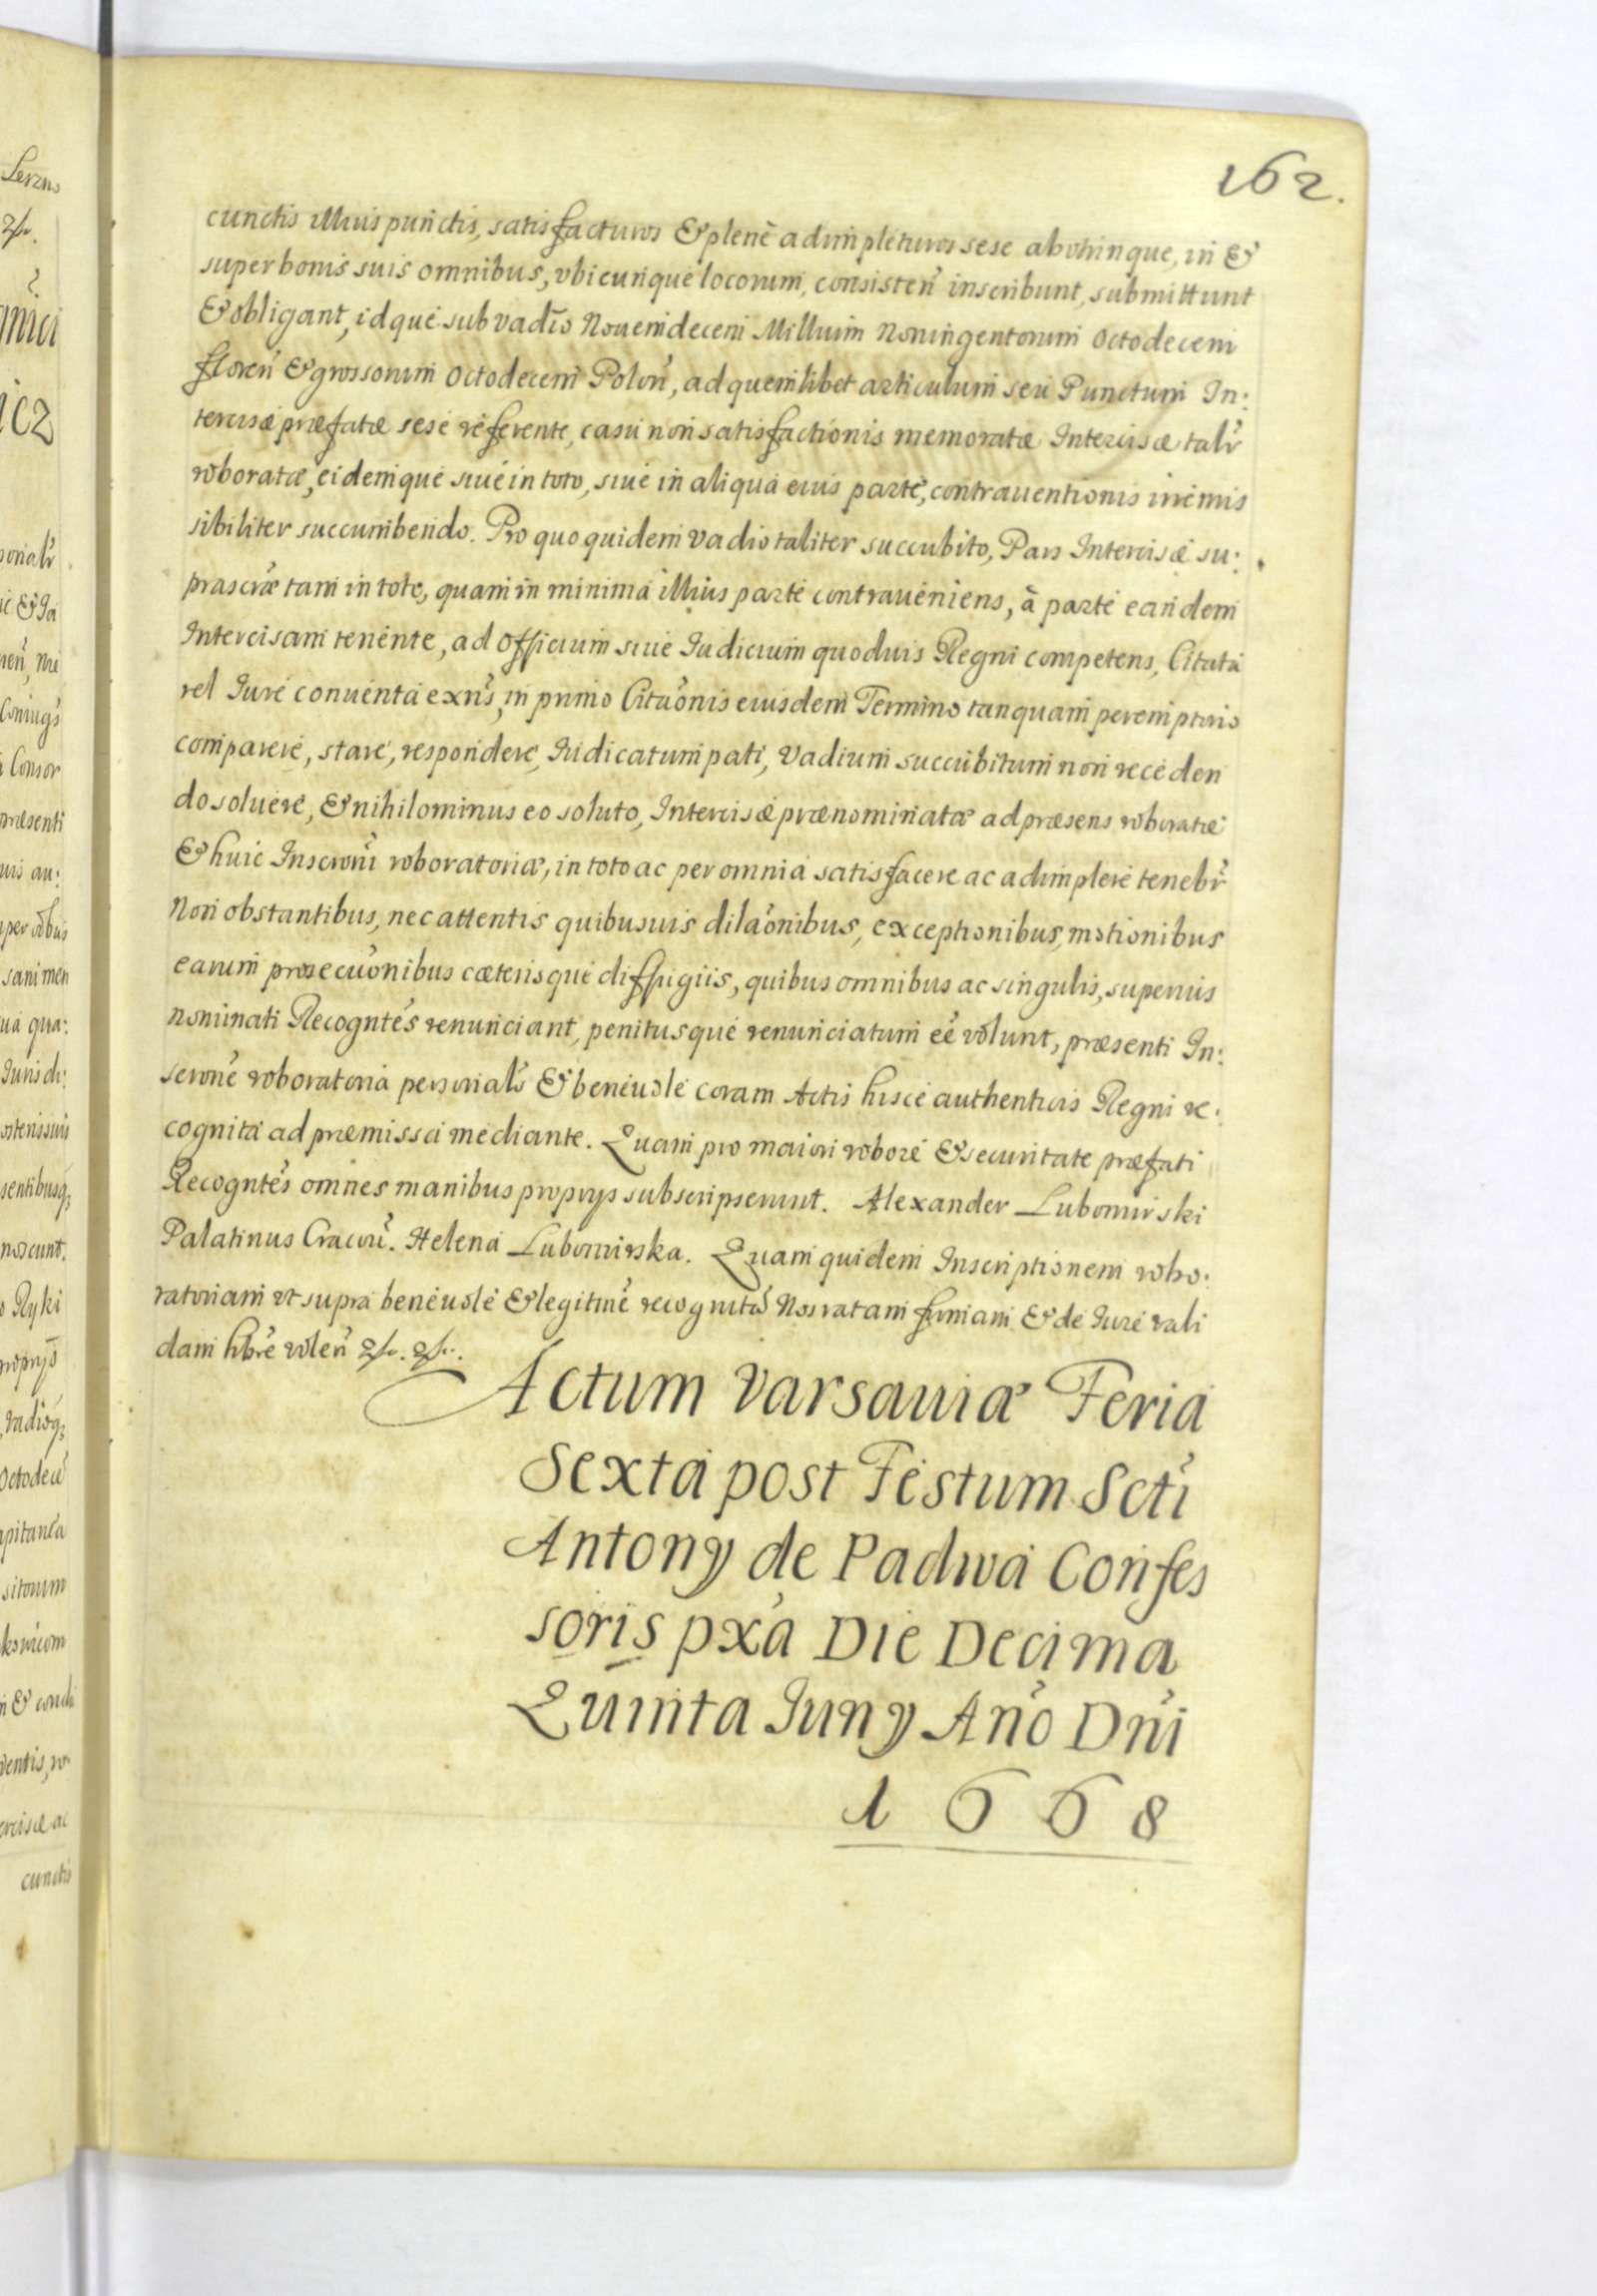 162.
cunctis illius punctis, satisfacturos & plenè adimpleturos sese abohinque, in &
super bonis suis omnibus, vbicunque locorum, consisteñ inscribunt, submittunt
& obligant, idque sub vadio Nouemdecem Millium Noningentorum Octodecem
floreñ & grossorum Octodecem Poloñ, ad quemlibet articulum seu Punctum In:
tercisæ præfatæ sese referente, casu non satisfactionis memoratæ Intercisæ talr̃
roboratæ, eidemque siue in toto, siue in aliqua eius parte, contrauentionis iremis
sibiliter succumbendo. Pro quo quidem vadio taliter succubito, Pars Intercisæ su:
prascræ tam in toto, quam in minima illius parte contraueniens, à parte eandem
Intercisam tenente, ad Officium siue Iudicium quoduis Regni competens, Citata
vel Iure conuenta exñs, in primo Citaõnis eiusdem Termino tanquam peremptorio
comparere, stare, respondere, Iudicatum pati, Vadium succubitum non receden
do soluere, & nihilominus eo soluto, Intercisæ prænominatæ ad præsens roboratæ
& huic Inscroñi roboratoriæ, in toto ac per omnia satisfacere ac adimplere tenebr̃
Non obstantibus, nec attentis quibusuis dilaõnibus, exceptionibus, motionibus
earum prosecuõnibus cæterisque diffugiis, quibus omnibus ac singulis, superius
nominati Recogntes renunciant, penitusque renunciatum eẽ volunt, præsenti In:
scrone roboratoria personalr̃ & beneuole coram Actis hisce authenticis Regni re:
cognita ad præmissa mediante. Quam pro maiori robore & securitate præfati
Recogntes omnes manibus proprys subscripserunt. Alexander Lubomirski
Palatinus Cracou. Helena Lubomirska. Quam quidem Inscriptionem robo:
ratoriam vt supra beneuole & legitime recognitã Nos ratam firmam & de Iure vali
dam hb̃re voleñ &c. &c.
Actum Varsauiæ Feria
Sexta post Festum Scti
Antony de Padwa Confes
soris pxã Die Decima
Quinta Iuny Año Dñi
1668